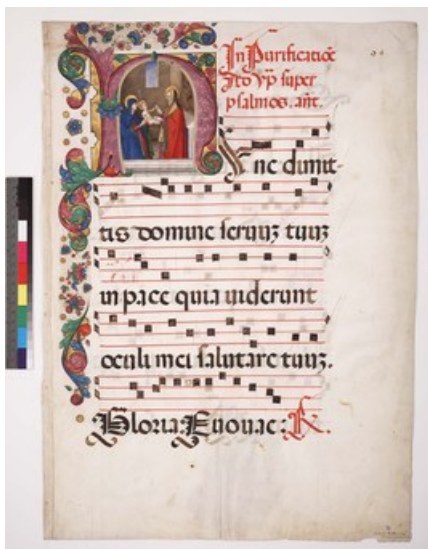 In Purificatiōe
ad vp̄ super
psalmos. añt.
Nunc dimit-
tis domine seruuʒ tuuʒ
in pace quia uiderunt
oculi mei salutare tuuʒ.
Gloria: Euouae: R.